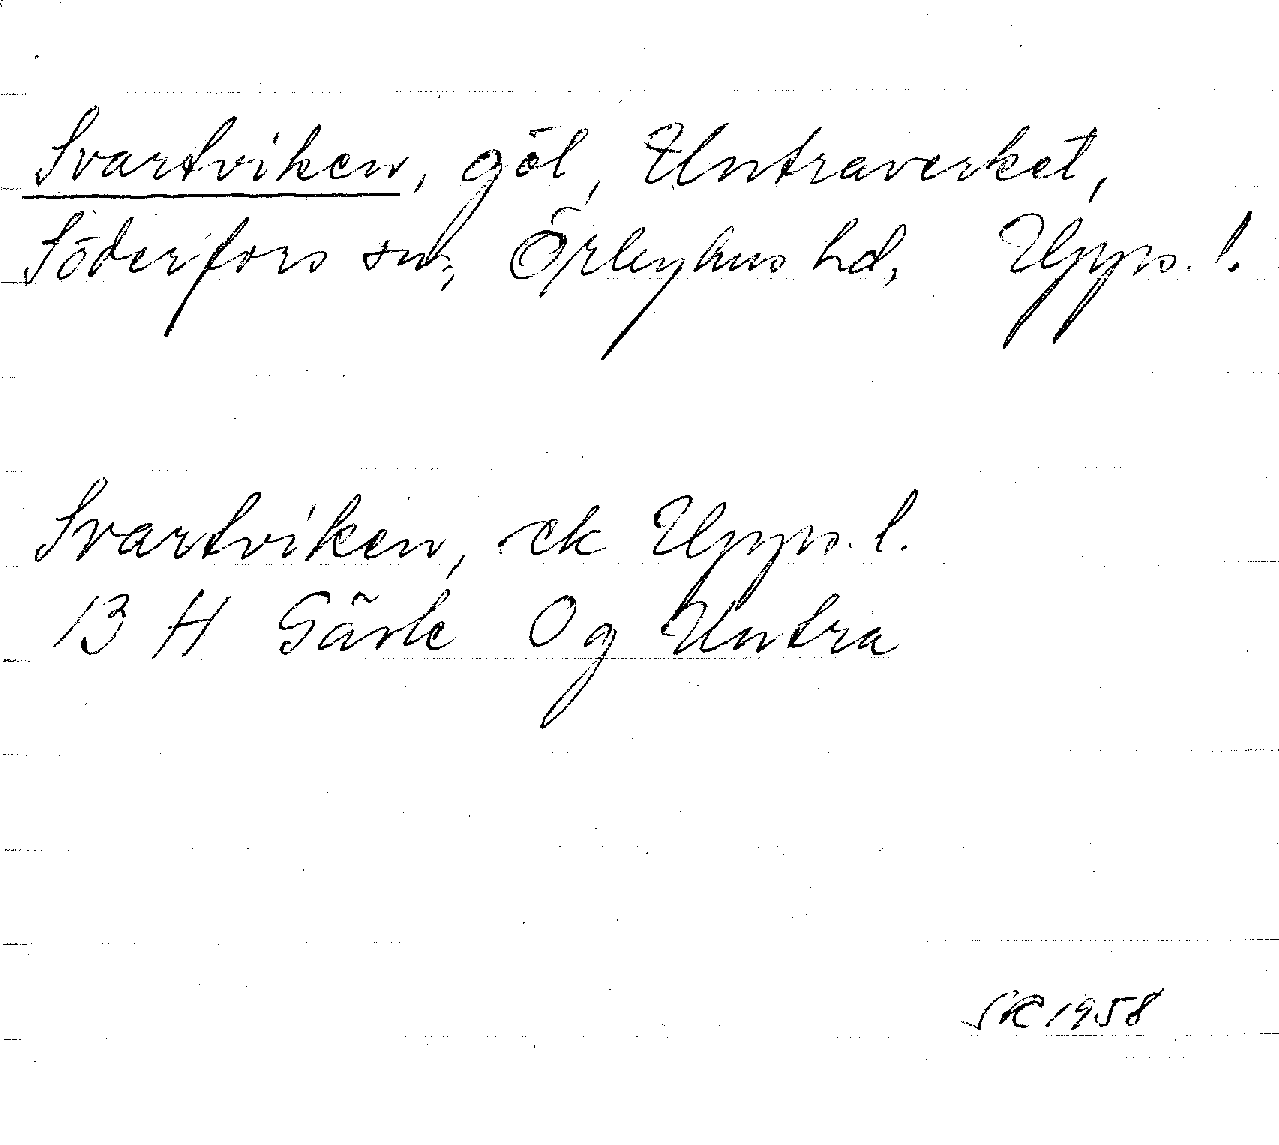 Svartviken, göl, Untraverket,
Söderfors sn, Örbyhus hd, Upps. l.
Svartviken, ek Upps. l.
13 H Gävle Og Untra
SK 1958